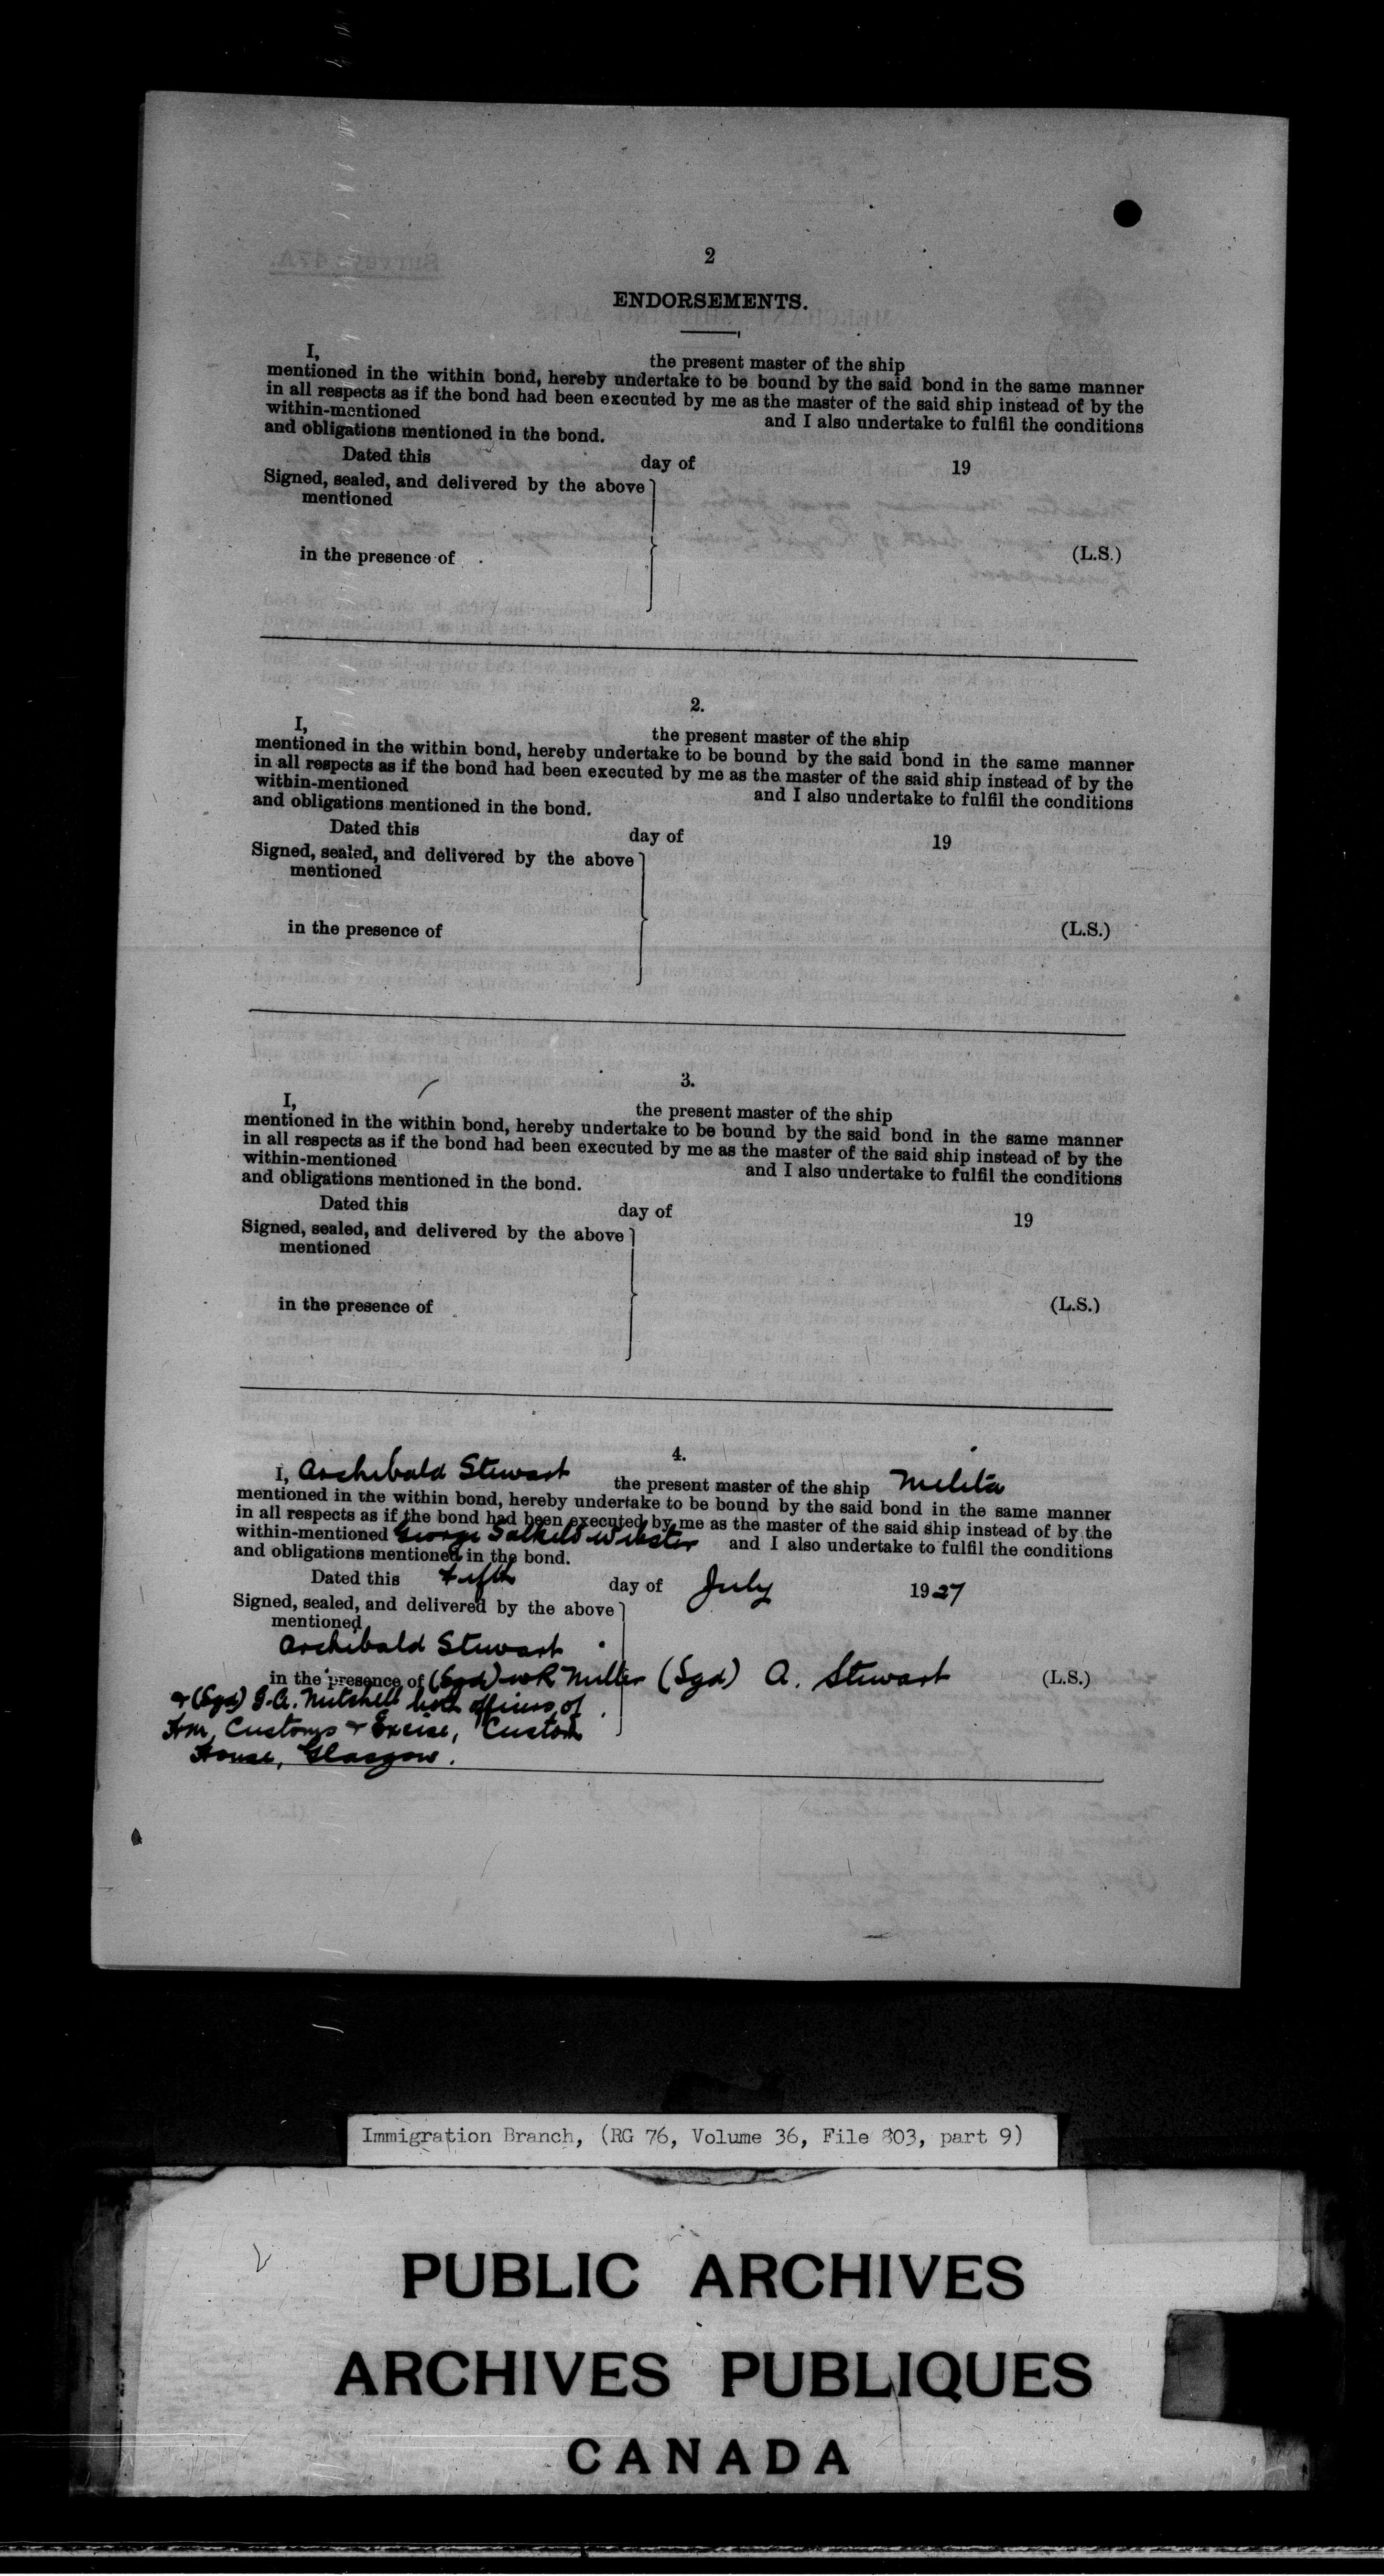 2
ENDORSEMENTS.
I, the present master of the ship
mentioned in the within bond, hereby undertake to be bound by the said bond in the same manner
in all respects as if the bond had been executed by me as the master of the said ship instead of by the
within-mentioned and I also undertake to fulfil the conditions
and obligations mentioned in the bond.
Dated this day of 19
Signed, sealed, and delivered by the above
mentioned
in the presence of (L.S.)
2.
I, the present master of the ship
mentioned in the within bond, hereby undertake to be bound by the said bond in the same manner
in all respects as if the bond had been executed by me as the master of the said ship instead of by the
within-mentioned and I also undertake to fulfil the conditions
and obligations mentioned in the bond.
Dated this day of 19
Signed, sealed, and delivered by the above
mentioned
in the presence of (L.S.)
3.
I, the present master of the ship
mentioned in the within bond, hereby undertake to be bound by the said bond in the same manner
in all respects as if the bond had been executed by me as the master of the said ship instead of by the
within-mentioned and I also undertake to fulfil the conditions
and obligations mentioned in the bond.
Dated this day of 19
Signed, sealed, and delivered by the above
mentioned
in the presence of (L.S.)
4.
I, Archibald Stewart the present master of the ship Melita
mentioned in the within bond, hereby undertake to be bound by the said bond in the same manner
in all respects as if the bond had been executed by me as the master of the said ship instead of by the
within-mentioned George Salkeld Webster and I also undertake to fulfil the conditions
and obligations mentioned in the bond.
Dated this fifth day of July 1927
Signed, sealed, and delivered by the above
mentioned
Archibald Stewart
in the presence of (Sgd) W R Miller (Sgd) A. Stewart (L.S.)
& (Sgd) J. A. Mitchell both officers of
HM Customs & Excise, Custom
House, Glasgow.
Immigration Branch, (RG 76, Volume 36, File 803, part 9)
PUBLIC ARCHIVES
ARCHIVES PUBLIQUES
CANADA